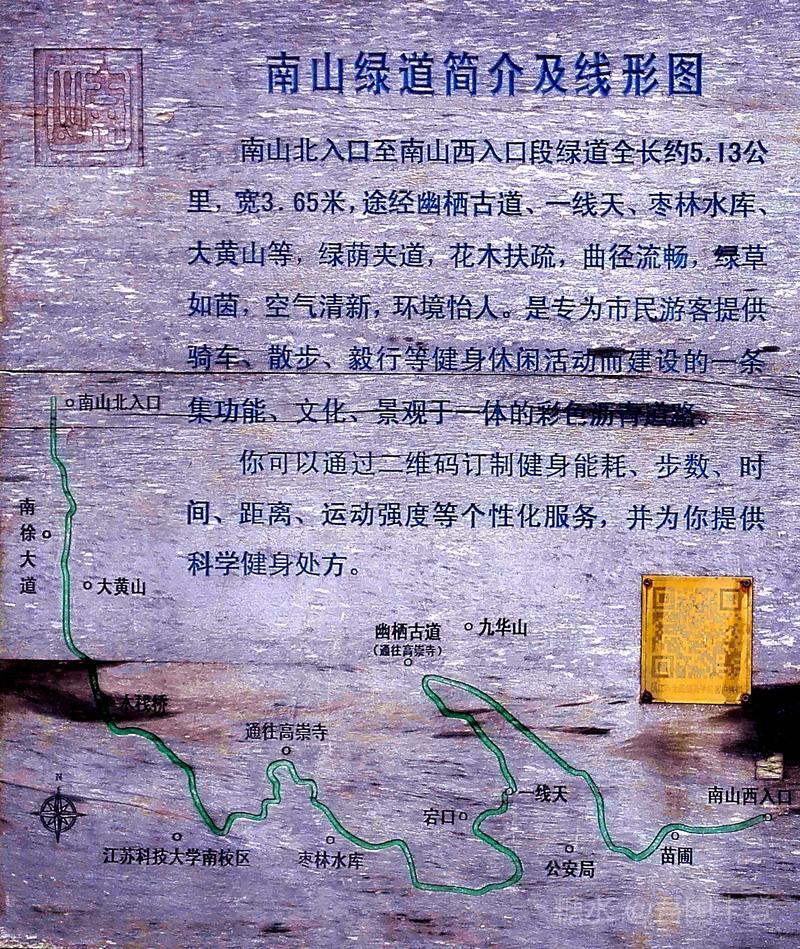 南山绿道简介及线形图
南山北入口至南山西入口段绿道全长约5.13公
里，宽3.65米，途经幽栖古道、一线天、枣林水库、
大黄山等，绿荫夹道，花木扶疏，曲径流畅，绿草
如茵，空气清新，环境怡人。是专为市民游客提供
骑车、散步、毅行等健身休闲活动而建设的一条
集功能、文化、景观于一体的彩色沥青道路。
你可以通过二维码订制健身能耗、步数、时
间、距离、运动强度等个性化服务，并为你提供
科学健身处方。
南山北入口
南徐大道
大黄山
木栈桥
幽栖古道
（通往高崇寺）
九华山
通往高崇寺
一线天
宕口
南山西入口
N
江苏科技大学南校区
枣林水库
公安局
苗圃